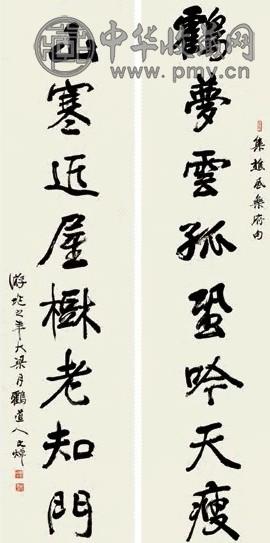 中华收藏网
www.pmv.cn
集樵風樂府句
鶴夢雲孤蛩吟天瘦
寒近屋樹老知門
游兆之年大梁月鶴道人文焯